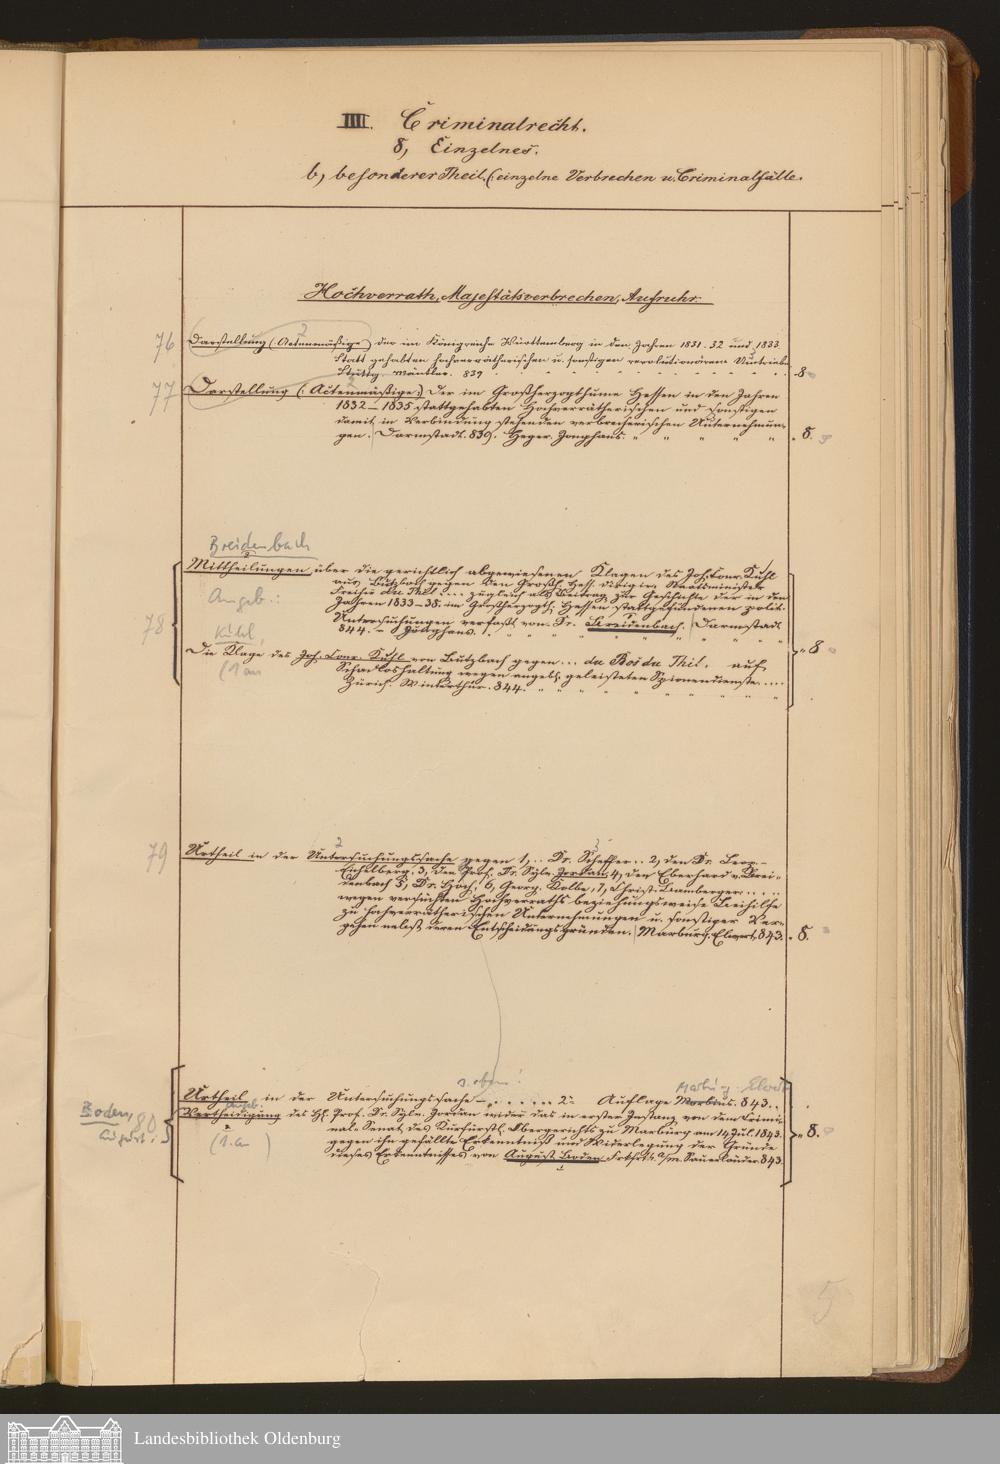 IIII. Criminalrecht.
8, Einzelnes.
b, besonderer Theil. (: einzelne Verbrechen u. Criminalfälle.
Hochverrath, Majestätsverbrechen, Aufruhr.
76 Darstellung (: Actenmäßige) der im Königreiche Württemberg in den Jahren 1831. 32 und 1833
statt gehabten hochverrätherischen u. sonstigen revolutionären Umtriebe
Stuttg. Mäntler. 839 8
77 Darstellung (: Actenmäßige:) der im Großherzogthume Hessen in den Jahren
1832–1835 stattgehabten hochverrätherischen und sonstigen
damit in Verbindung stehenden verbrecherischen Unternehmun-
gen. Darmstadt. 839. Heyer. Jonghaus. 8.
Breidenbach
Mittheilungen über die gerichtlich abgewiesenen Klagen des Joh. Conr. Kuhl
aus Butzbach gegen den Großh. Hess. dirigir. Staatsminister
Freihr du Thil ... zugleich als Beitrag zur Geschichte der in den
Angeb.:
Jahren 1833–38. im Großherzogth. Hessen stattgefundenen polit.
78
Untersuchungen verfaßt von Dr. Breidenbach. Darmstadt
844. Jonghaus.
Kuhl,
Die Klage des Joh. Conr. Kuhl von Butzbach gegen ... du Bos du Thil. auf 8
(1 an
Schadloshaltung wegen angebl. geleisteten Spionendienste....
Zürich. Winterthur. 844.
79 Urtheil in der Untersuchungssache gegen 1, .. Dr. Scheffer .. 2, den Dr. Leop.-
Eichelberg, 3, den Prof. Dr. Sylv. Jordan 4, den Eberhard v. Brei-
denbach 5, Dr. Hach, 6, Georg Kolbe, 7, Christ. Baumberger ....
wegen versuchten Hochverraths beziehungsweise Beihilfe
zu hochverrätherischen Unternehmungen u. sonstiger Ver-
gehen nebst deren Entscheidungsgründen. Marburg. Elwert. 843. 8.
s. oben! Marburg. Elwert
Urtheil in der Untersuchungssache –, . . . . . . 2te Auflage 843..
Boden, 80
August.
Vertheidigung des H. Prof. Dr. Sylv. Jordan wider das in erster Instanz von dem Crimi-
nal-Senat des Kurfürstl. Obergerichts zu Marburg am 14 Jul. 1843. 8.
(1. an )
gegen ihn gefällte Erkenntniß und Widerlegung der Gründe
dieses Erkenntnisses von August Boden. Frkfrt a/m. Sauerländer 843
Landesbibliothek Oldenburg